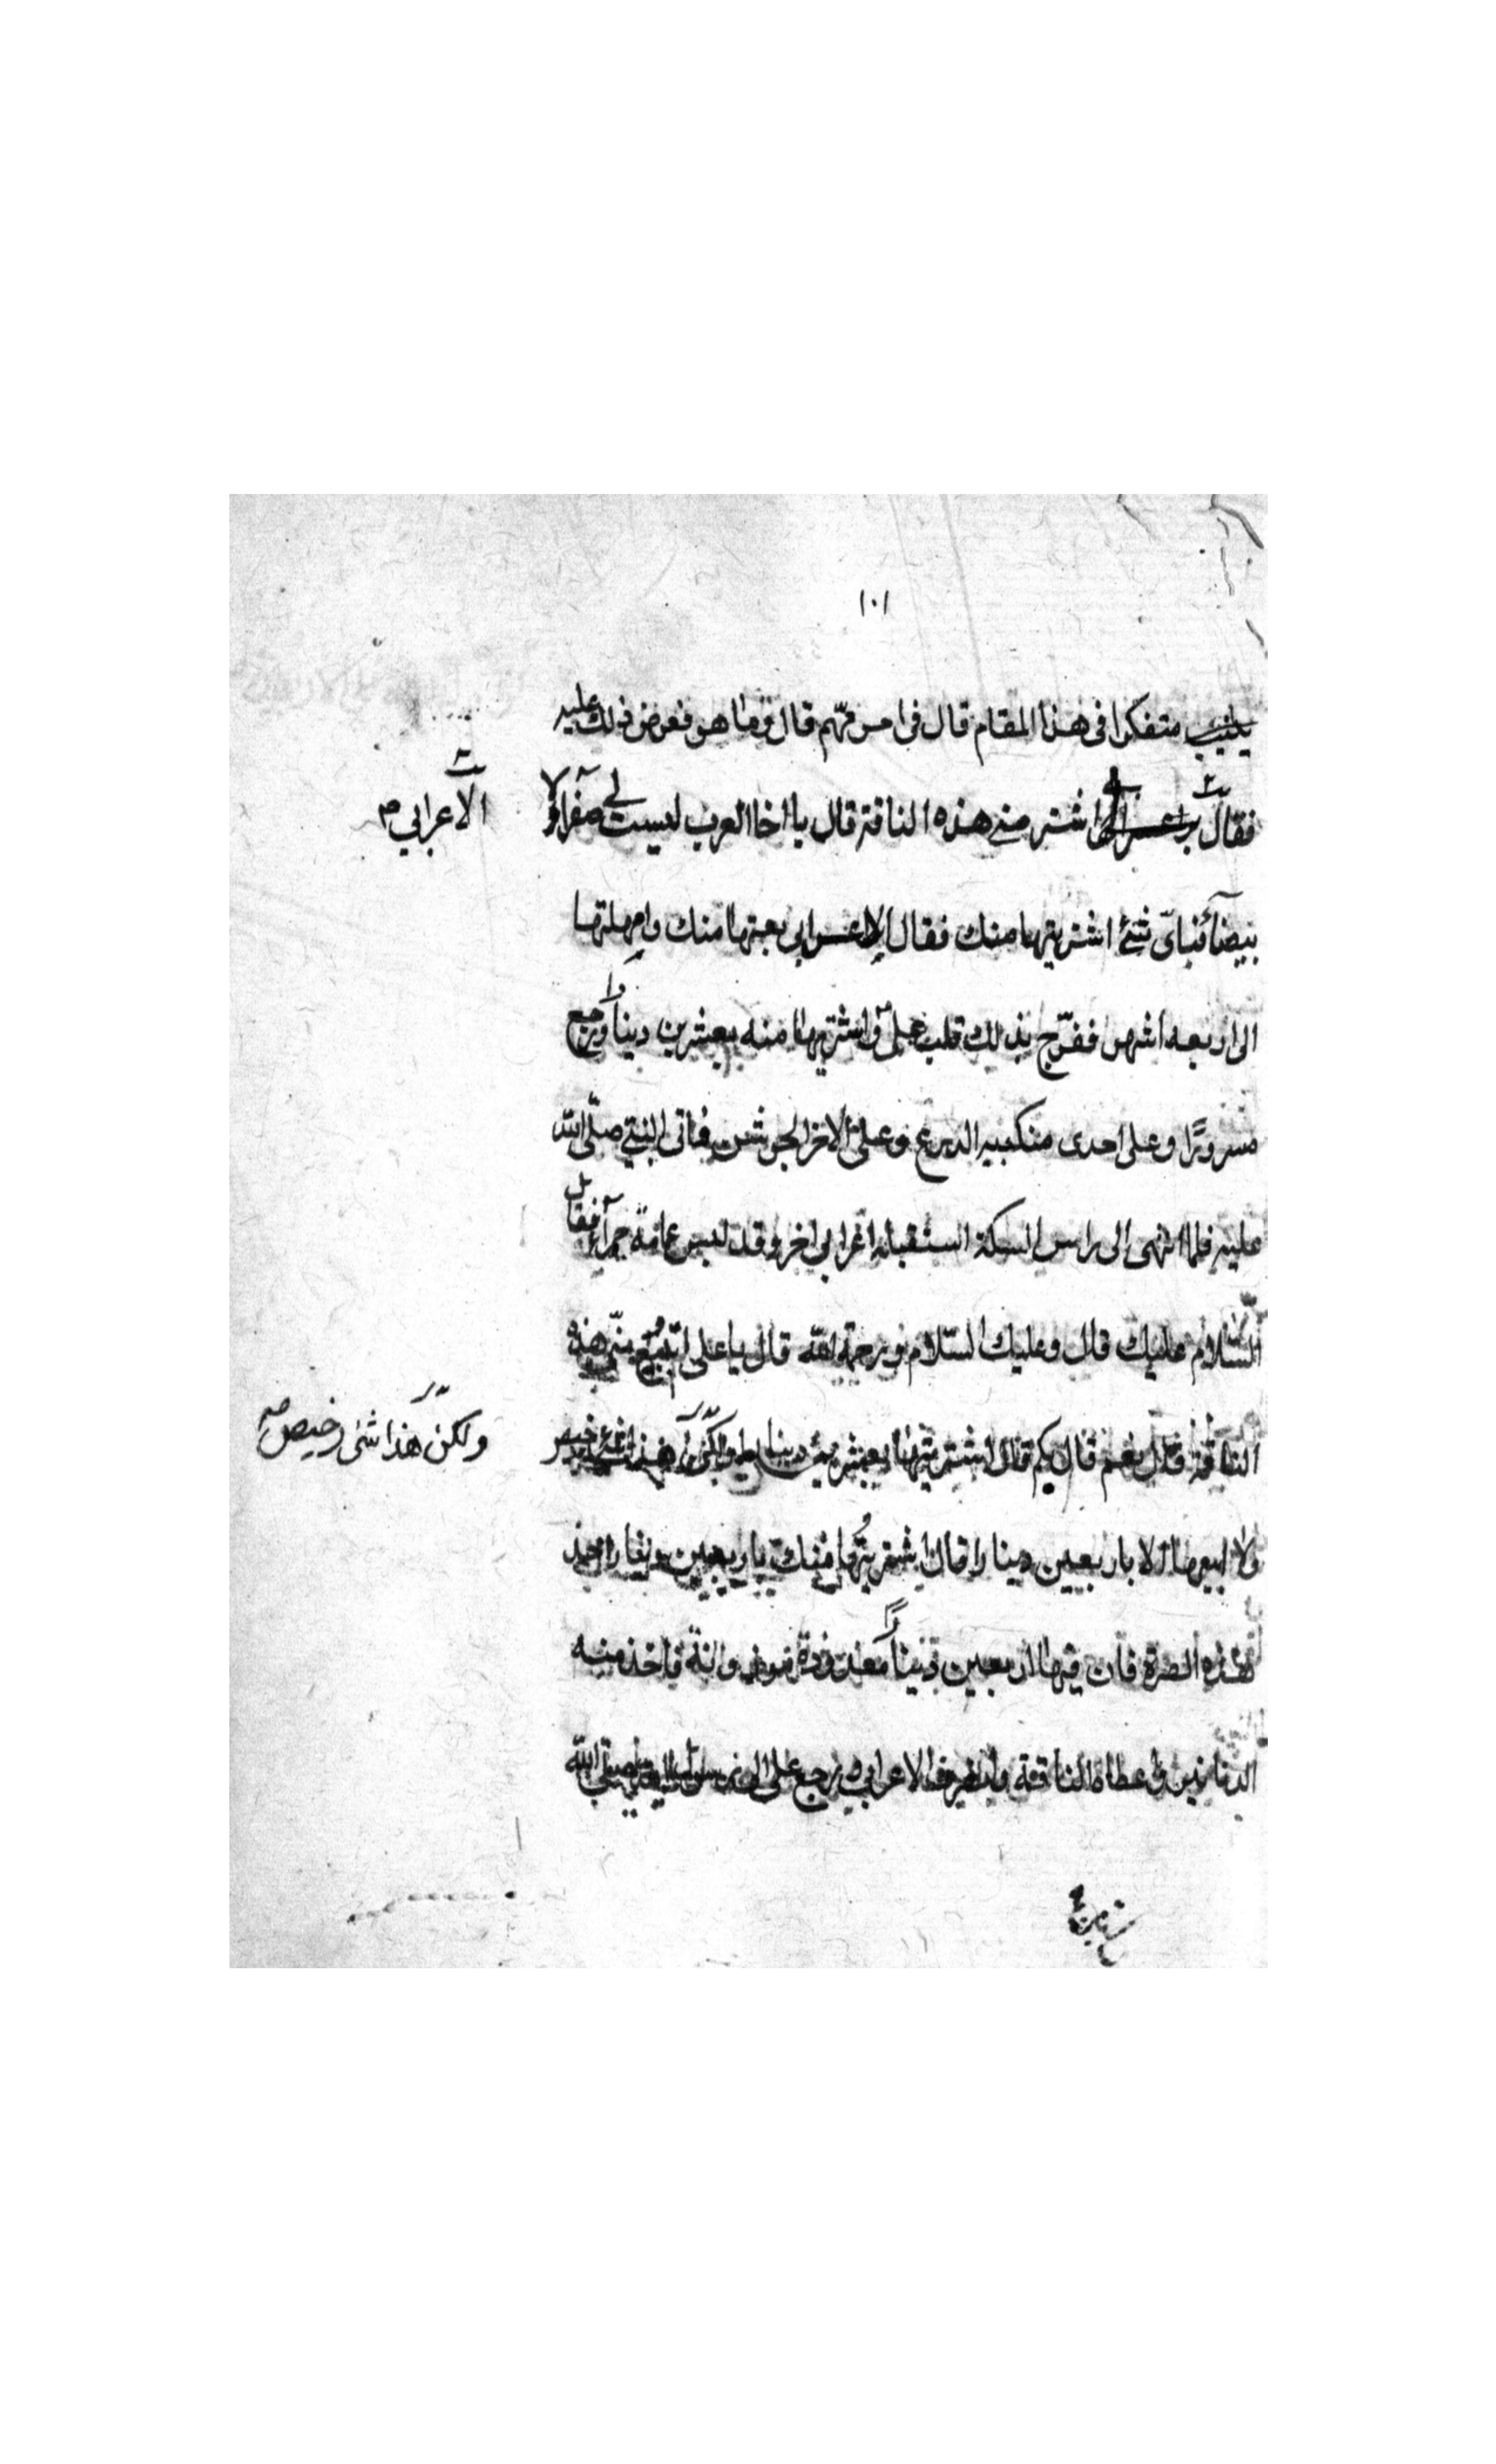 ١٠١
متفكرا فى هذا المقام قال فى امر مهم قال وما هو فعرض ذلك عليه
فقال اشتر منى هذه الناقة قال يا اخا العرب ليست لى صفرآ ولا
الاعرابي صح
بيضآ فباى شئ اشتريتها منك فقال الاعرابى بعتها منك وامهلتها
الى اربعه اشهر ففرّج بذلك قلب على واشتريها منه بعشرين دينارا ورجع
مسرورًا وعلى احدى منكبيه الدرع وعلى الاخر الجوشن فاتى النبي صلّى الله
عليه فلما انتهى الى راس السكة استقبله اعرابى اخر وقد لبس عمامة حمرآ فقال
السّلام عليك قال وعليك السّلام ورحمة الله قال يا على اتبيع منّى هذه
الناقة قال نعم قال بكم قال اشتريتها بعشرين دينارا
ولكن هذا شئ رخيص صح
ولا ابيعها الا باربعين دينارا قال اشتريتها منك باربعين دينارا خذ
هذه الصرة فان فيها اربعين دينارا معدودة موزونة فاخذ منه
الدنانير واعطاه الناقة وانصرف الاعرابى ورجع على الى رسول الله صلى الله